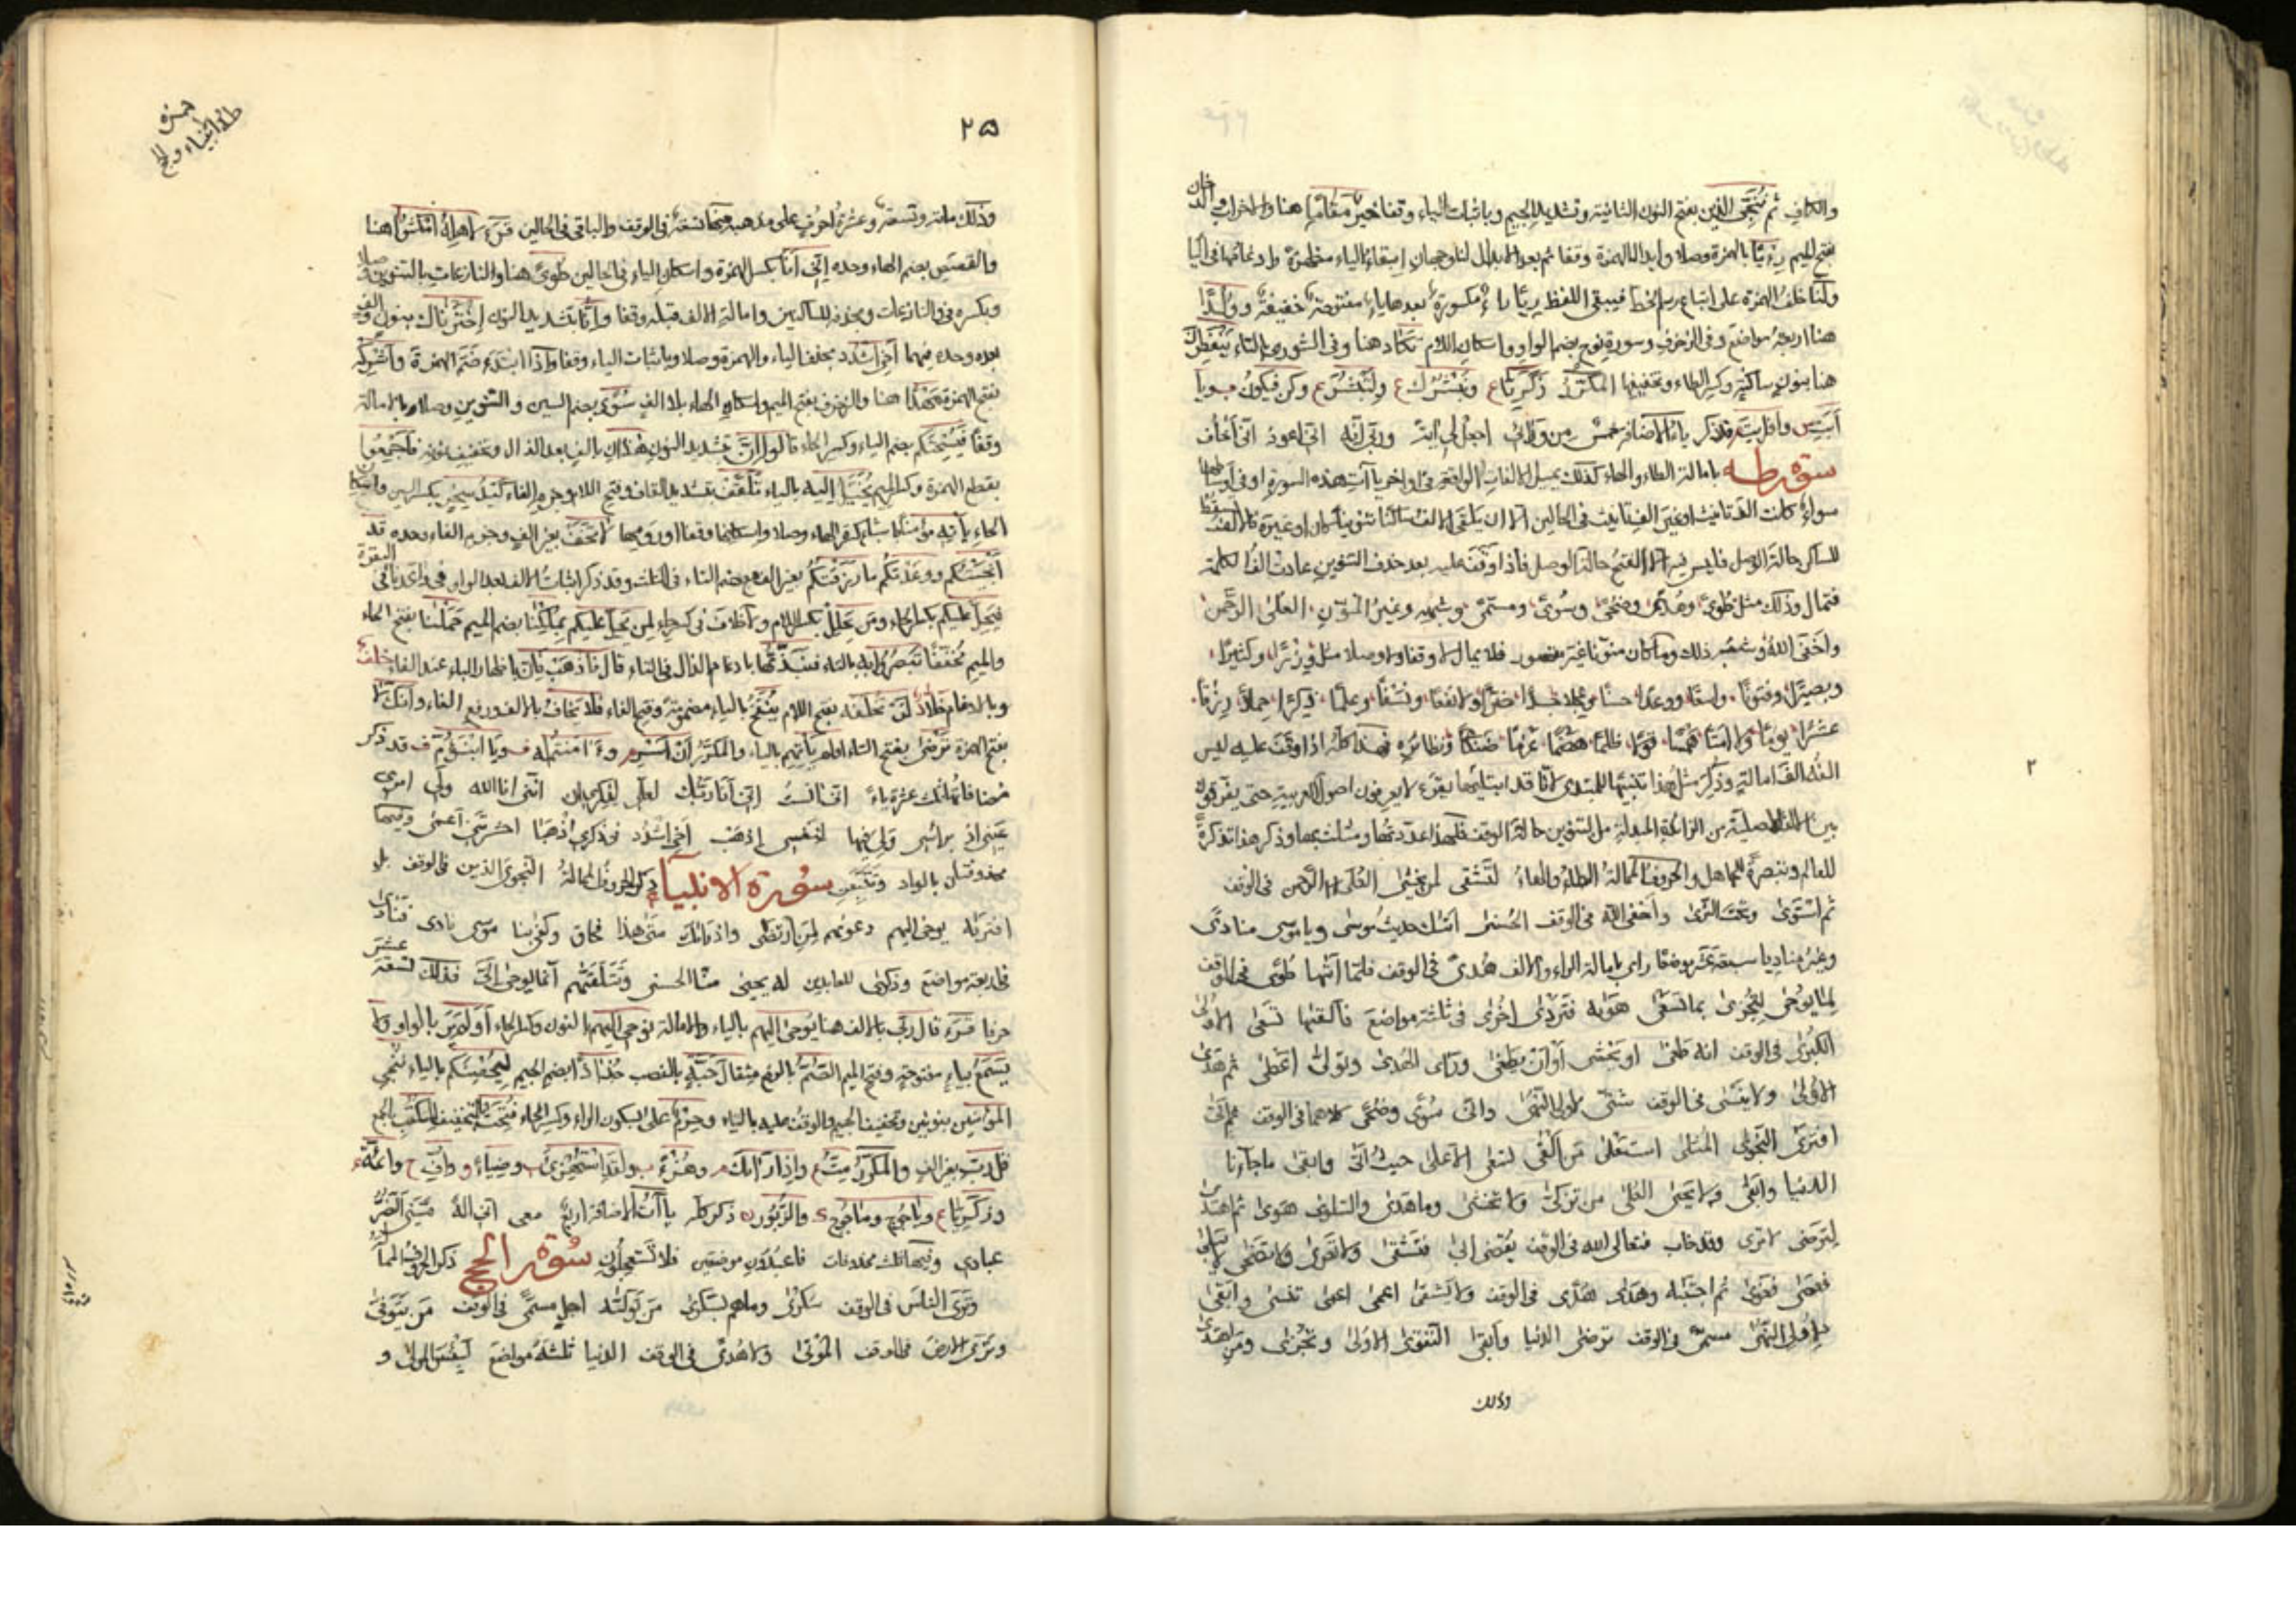 والكاف ثم ننجى الذين بفتح النون الثانية وتشديد الجيم وباثبات الياء وقفا خير مقاما هنا والاحزاب والدخان
بفتح الميم رءيا بالهمزة وصلا وابدال الهمزة وقفا ثم بعد الابدال لنا وجهان ابقاء الياء مظهرة وادغامها فى اليا
ولنا حذف الهمزة على اتباع رسم الخط فيبقى اللفظ ريا راء مكسورة بعدها ياء مفتوحة خفيفة وولدا
هنا اربعة مواضع وفى الزخرف وسورة نوح بضم الواو واسكان اللام تكاد هنا وفى الشورى بالتاء ينفطرن
هنا بنون ساكنة وكسر الطاء وتخفيفها المكرر زكريا ونبشرك ولتبشر وكن فيكون
قد ذكر ياء الاضافة خمس من ورائى اجعل لى اية وربى انه انى اعوذ انى اخاف
سورة طه بامالة الطاء والهاء كذلك يميل الالفات الواقعة فى اواخر يا آت هذه السورة او فى اوساطها
سواء كانت الف تانيث او غير الف تانيث فى الحالين الا ان يلقى الالف ساكنا تنوينا كان او غيره فالالف تسقط
للساكن حالة الوصل فليس فيه الا الفتح حالة الوصل فاذا وقفت عليه بعد حذف التنوين عادت الف الكلمة
فتمال وذلك مثل طوى وهدى وضحى وسوى ومسمى وشبهه وغير المنون العلى الرحمن
واخفى الله وشبه ذلك وما كان منونا غير مقصور فلا يمال لا وقفا ولا وصلا مثل وزيرا وكثيرا
وبصيرا وفتونا واسفا ووعدا حسنا وعجلا جسدا ضرا ولا نفعا ونسفا وعلما ذكرا حملا زرقا
عشرا يوما ولا امتا همسا قولا ظلما هضما عزما ضنكا ونظائره فهذا كله اذا وقفت عليه ليس
الفه الف امالة وذكر مثل هذا تنبيها للمبتدى لانا قد ابتلينا بقوم لا يعرفون اصول العربية حتى يفرقون
بين الالف الاصلية من الزائدة المبدلة من التنوين حالة الوقف فلهذا عددتها ومثلت بها وذكر هذا تذكرة
للعالم وتبصرة للجاهل والحروف الممالة الطاء والهاء لتشقى لمن يخشى العلى الرحمن فى الوقف
ثم استوى وتحت الثرى واخفى الله فى الوقف الحسنى اتيك حديث موسى ويا موسى منادى
وغير منادى سبعة عشر موضعا راى بامالة الراء والالف هدى فى الوقف فلما اتيها طوى فى الوقف
لما يوحى لتجزى بما تسعى هويه فتردى اخرى فى ثلثة مواضع فالقيها تسعى الاولى
الكبرى فى الوقف انه طغى او يخشى او ان يطغى وارى الهدى وتولى اعطى ثم هدى
الاولى ولا ينسى فى الوقف شتى لاولى النهى واتى سوى وضحى كلاهما فى الوقف ثم اتى
افترى النجوى المثلى استعلى من القى تسعى الاعلى حيث اتى وابقى ما جاءنا
الدنيا وابقى ولا يحيى العلى من تزكى ولا تخشى وما هدى والسلوى هوى ثم اهتدى
لترضى لا ترى وقد خاب فتعالى الله فى الوقف يقضى ابى فتشقى ولا تعرى ولا تضحى لا يبلى
فعصى فغوى ثم اجتبيه وهدى هدى فى الوقف ولا يشقى اعمى اعمى تنسى وابقى
لاولى النهى مسمى فى الوقف ترضى الدنيا وابقى التقوى الاولى ونخزى ومن اهتدى
وذلك
٢
همزه
طه والانبياء والحج
٢٥
وذلك مائة وتسعة وعشرة احرف على مذهبه منها تسعة فى الوقف والباقى فى الحالين قرء لاهله امكثوا هنا
والقصص بضم الهاء وحده انى انا بكسر الهمزة واسكان الياء فى الحالين طوى هنا والنازعات بالتنوين وصلا
وبكسره فى والنازعات ويحذفه للساكنين وامالة الالف قبله وقفا وانا بتشديد النون اخترناك بنون والف
بعده وحده فيهما اخى اشدد بحذف الياء والهمزة وصلا وباثبات الياء وقفا واذا ابتدء ضم الهمزة واشركه
بفتح الهمزة مهدا هنا والزخرف بفتح الميم واسكان الهاء بلا الف سوى بضم السين والتنوين وصلا وبالامالة
وقفا فيسحتكم بضم الياء وكسر الحاء قالوا ان بتشديد النون هذان بالف بعد الذال وتخفيف نونه فاجمعوا
بقطع الهمزة وكسر الميم يخيل اليه بالياء تلقف بتشديد القاف وفتح اللام وجزم الفاء كيد سحر بكسر السين واسكان
الحاء لا تخف بغير الف وجزم الفاء وحده قد
انجيتكم ووعدتكم ما رزقتكم بغير الف مع ضم التاء فى الثلث وقد ذكر اثبات الالف بعد الواو فى واعدنا فى البقرة
فيحل عليكم بكسر الحاء ومن يحلل بكسر اللام ولا خلاف فى كسر حاء ان يحل عليكم بملكنا بضم الميم حملنا بفتح الحاء
والميم مخففا تبصروا به بالتاء فنبذتها بادغام الذال فى التاء قال فاذهب فان باظهار الباء عند الفاء خلف
وبالادغام خلاد لن تخلفه بفتح اللام ينفخ بالياء مضمومة وفتح الفاء فلا يخاف بالالف ورفع الفاء وانك لا
بفتح الهمزة ترضى بفتح التاء اولم ياتهم بالياء والمكرر ان اسر وء امنتم له ويا ابنؤم قد ذكر
فيها ثلث عشرة ياء انى انست انى انا ربك لعلى لذكرى ان اننى انا الله ولى امرى
عينى اذ براسى ولى فيها لنفسى اذهب اخى اشدد فى ذكرى اذهبا حشرتنى اعمى وفيها
محذوفتان بالواد وتتبعن سورة الانبياء ذكر الحروف الممالة النجوى الذين فى الوقف بل
افتريه يوحى اليهم دعويهم لمن ارتضى واذا راك متى هذا فحاق وكفى بنا موسى نادى فنادى
فى اربعة مواضع وذكرى للعابدين له يحيى منا الحسنى وتتلقيهم انما يوحى الى فذلك تسعة عشر
حرفا قرء قال ربى بالالف هنا يوحى اليهم بالياء والامالة نوحى اليه بالنون وكسر الحاء اولم ير بالواو ولا
يسمع بياء مفتوحة وفتح الميم الصم بالرفع مثقال حبة بالنصب جذاذا بضم الجيم ليحصنكم بالياء ننجى
المؤمنين بنونين وتخفيف الجيم والوقف عليه بالياء وحرم على بسكون الراء وكسر الحاء فتحت بالتخفيف للكتب بالجمع
قل رب بغير الف والمكرر مت واذا راك وهزؤا ولقد استهزئ وضياء واف وائمة
وزكريا وياجوج وماجوج والزبور ذكر كله يا آت الاضافة اربع معى انى اله مسنى الضر
عبادى وفيها ثلث محذوفات فاعبدون موضعين فلا تستعجلون سورة الحج ذكر الحروف الممالة
وترى الناس فى الوقف سكرى وما هم بسكرى من تولاه اجل مسمى فى الوقف من يتوفى
وترى الارض فى الوقف الموتى ولا هدى فى الوقف الدنيا ثلثة مواضع لبئس المولى و